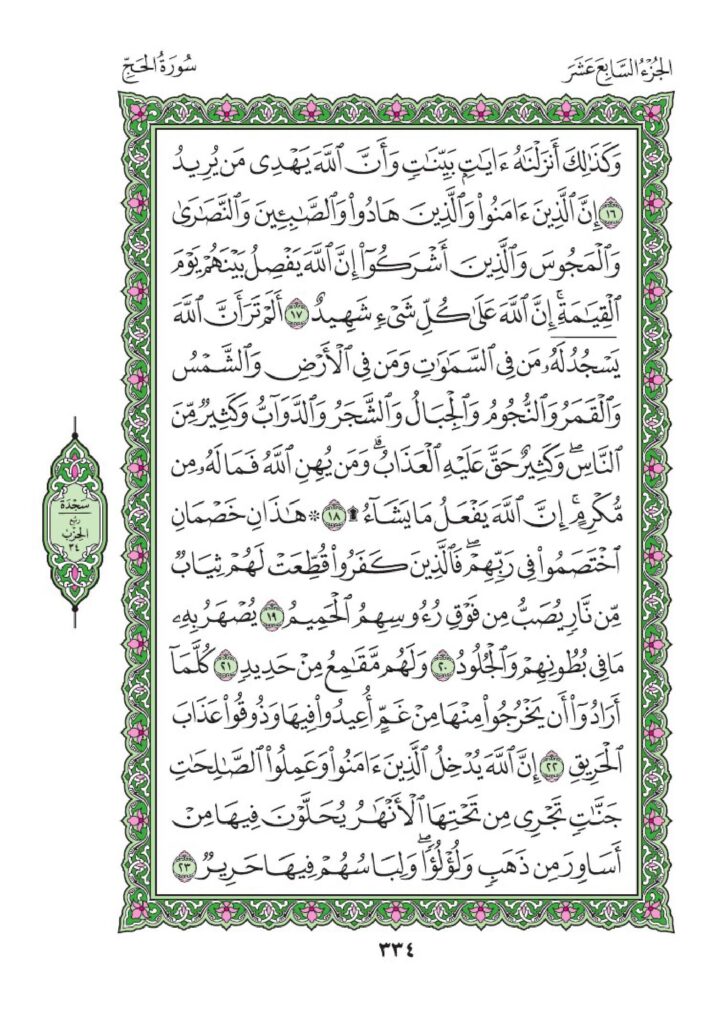 الجُزْءُ السَّابِعَ عَشَرَ
سُورَةُ الحَجِّ
وَكَذَٰلِكَ أَنزَلْنَٰهُ ءَايَٰتٍۭ بَيِّنَٰتٍ وَأَنَّ ٱللَّهَ يَهْدِى مَن يُرِيدُ
١٦ إِنَّ ٱلَّذِينَ ءَامَنُوا۟ وَٱلَّذِينَ هَادُوا۟ وَٱلصَّٰبِـِٔينَ وَٱلنَّصَٰرَىٰ
وَٱلْمَجُوسَ وَٱلَّذِينَ أَشْرَكُوٓا۟ إِنَّ ٱللَّهَ يَفْصِلُ بَيْنَهُمْ يَوْمَ
ٱلْقِيَٰمَةِۚ إِنَّ ٱللَّهَ عَلَىٰ كُلِّ شَىْءٍ شَهِيدٌ ١٧ أَلَمْ تَرَ أَنَّ ٱللَّهَ
يَسْجُدُ لَهُۥ مَن فِى ٱلسَّمَٰوَٰتِ وَمَن فِى ٱلْأَرْضِ وَٱلشَّمْسُ
وَٱلْقَمَرُ وَٱلنُّجُومُ وَٱلْجِبَالُ وَٱلشَّجَرُ وَٱلدَّوَآبُّ وَكَثِيرٌ مِّنَ
ٱلنَّاسِۖ وَكَثِيرٌ حَقَّ عَلَيْهِ ٱلْعَذَابُۗ وَمَن يُهِنِ ٱللَّهُ فَمَا لَهُۥ مِن
مُّكْرِمٍۚ إِنَّ ٱللَّهَ يَفْعَلُ مَا يَشَآءُ ۩ ١٨ ۞ هَٰذَانِ خَصْمَانِ
ٱخْتَصَمُوا۟ فِى رَبِّهِمْۖ فَٱلَّذِينَ كَفَرُوا۟ قُطِّعَتْ لَهُمْ ثِيَابٌ
مِّن نَّارٍ يُصَبُّ مِن فَوْقِ رُءُوسِهِمُ ٱلْحَمِيمُ ١٩ يُصْهَرُ بِهِۦ
مَا فِى بُطُونِهِمْ وَٱلْجُلُودُ ٢٠ وَلَهُم مَّقَٰمِعُ مِنْ حَدِيدٍ ٢١ كُلَّمَآ
أَرَادُوٓا۟ أَن يَخْرُجُوا۟ مِنْهَا مِنْ غَمٍّ أُعِيدُوا۟ فِيهَا وَذُوقُوا۟ عَذَابَ
ٱلْحَرِيقِ ٢٢ إِنَّ ٱللَّهَ يُدْخِلُ ٱلَّذِينَ ءَامَنُوا۟ وَعَمِلُوا۟ ٱلصَّٰلِحَٰتِ
جَنَّٰتٍ تَجْرِى مِن تَحْتِهَا ٱلْأَنْهَٰرُ يُحَلَّوْنَ فِيهَا مِنْ
أَسَاوِرَ مِن ذَهَبٍ وَلُؤْلُؤًاۖ وَلِبَاسُهُمْ فِيهَا حَرِيرٌ ٢٣
سجدة
ربع
الحزب
٣٤
٣٣٤